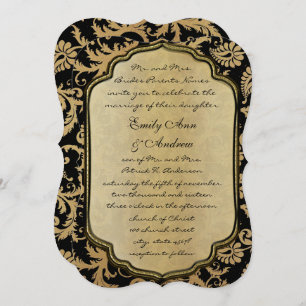 Mr. and Mrs.
Brides Parents Names
invite you to celebrate the
marriage of their daughter
Emily Ann
& Andrew
son of Mr. and Mrs.
Patrick H. Anderson
saturday the fifth of november,
two thousand and sixteen
three o'clock in the afternoon
church of Christ
100 church street
city, state 45697
reception to follow